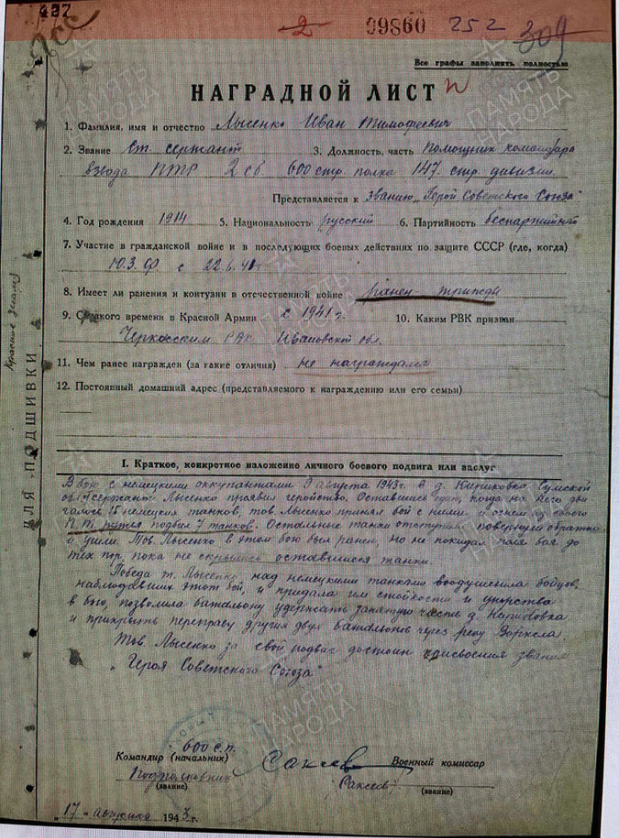 427
2 09860 252 309
Все графы заполнять полностью
НАГРАДНОЙ ЛИСТ
1. Фамилия, имя и отчество Лысенко Иван Тимофеевич
2. Звание Ст. сержант 3. Должность, часть Помощник командира
взвода ПТР 2 сб 600 стр. полка 147 стр. дивизии
Представляется к званию „Герой Советского Союза"
4. Год рождения 1914 5. Национальность русский 6. Партийность беспартийный
7. Участие в гражданской войне и в последующих боевых действиях по защите СССР (где, когда)
Ю.З.Ф. с 22.6.41 г
8. Имеет ли ранения и контузии в отечественной войне ранен трижды
9. С какого времени в Красной Армии с 1941 г. 10. Каким РВК призван
РВК Ивановской обл.
11. Чем ранее награжден (за какие отличия) не награждался
12. Постоянный домашний адрес (представляемого к награждению или его семьи)
ДЛЯ ПОДШИВКИ
I. Краткое, конкретное изложение личного боевого подвига или заслуг
В бою с немецкими оккупантами 9 августа 1943 г. в д. Кириковка Сумской
обл. сержант Лысенко проявил геройство. Оставшись один, когда на него дви
галось 15 немецких танков, тов. Лысенко принял бой с ними и огнем своего
П.Т. ружья подбил 7 танков. Остальные танки отступили повернули обратно
и ушли. Тов. Лысенко в этом бою был ранен, но не покидал поля боя до
тех пор пока не скрылись оставшиеся танки.
Победа т. Лысенко над немецкими танками воодушевила бойцов,
наблюдавших этот бой, и придала им стойкости и упорства
в бою, позволила батальону удержать занятую часть д. Кириковка
и прикрыть переправу других двух батальонов через реку Ворскла.
Тов. Лысенко за свой подвиг достоин присвоения звания
„Героя Советского Союза"
600 с.п.
Командир (начальник) Военный комиссар
Подполковник (Саксеев)
(звание) (звание)
17 августа 1943 г.
ПАМЯТЬ НАРОДА